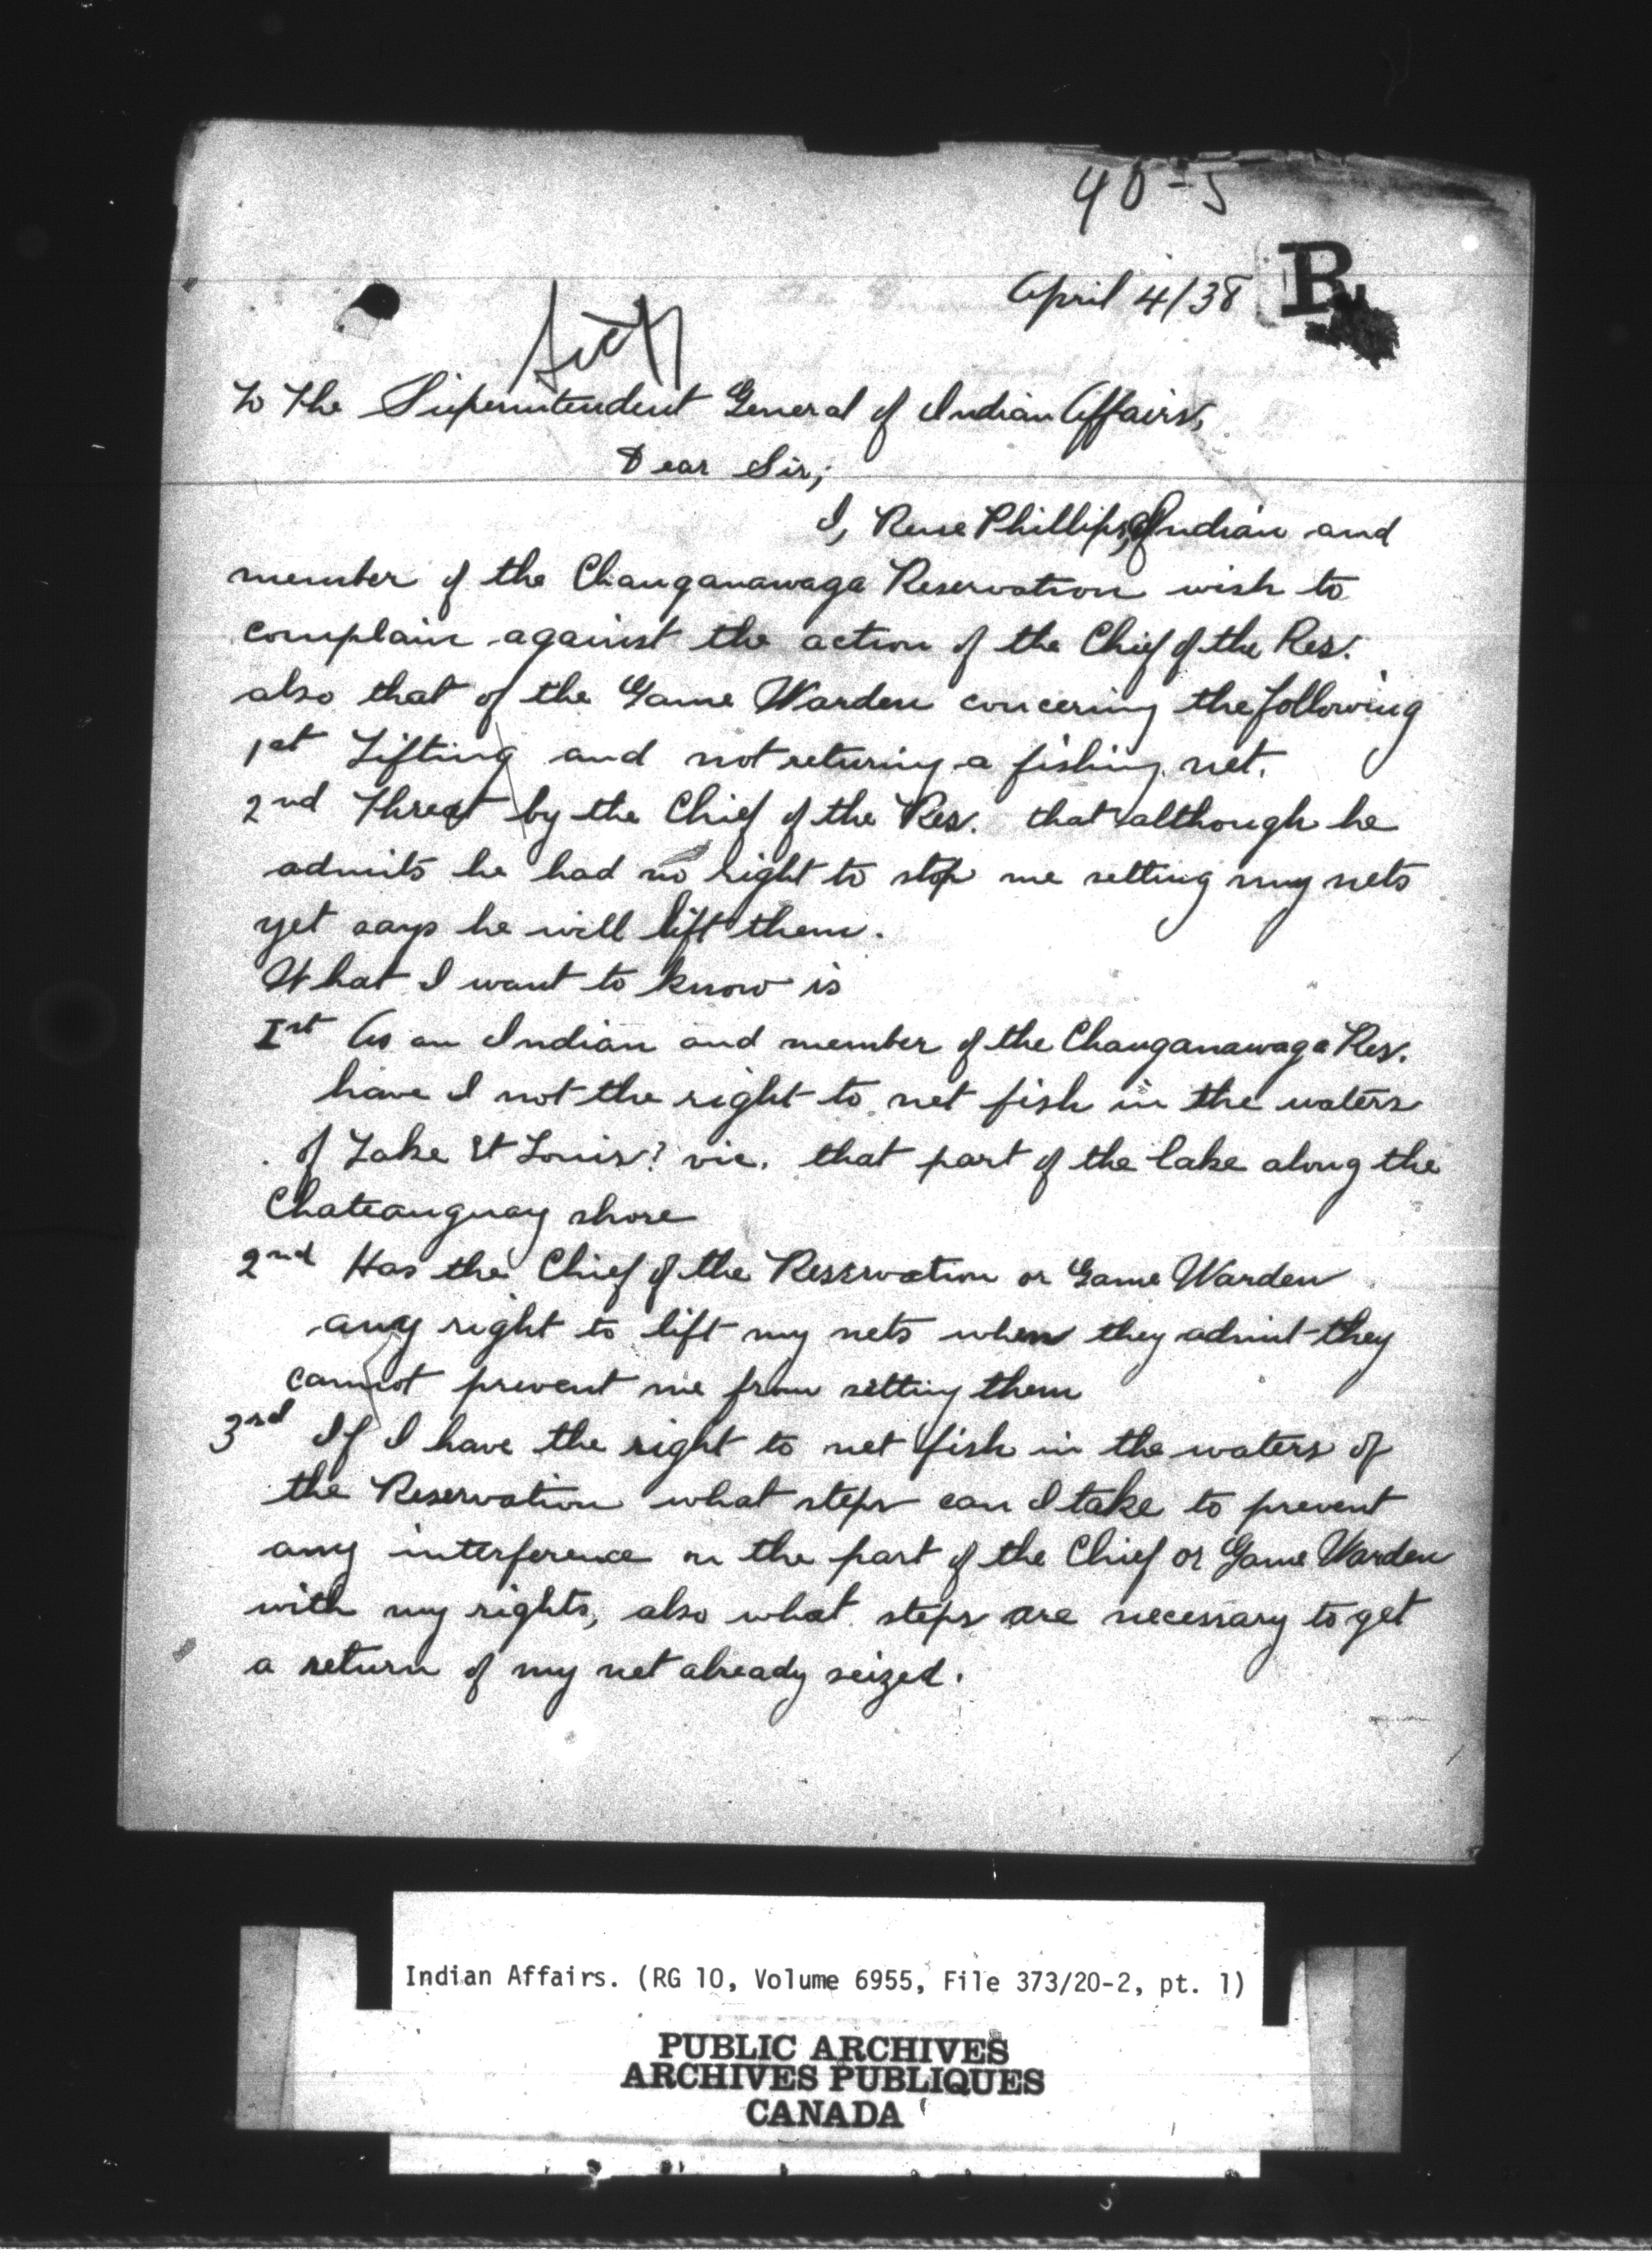 40-5
April 4/38
B
To The Superintendent General of Indian Affairs,
Dear Sir;
I, Rene Phillips, Indian and
member of the Chauganawaga Reservation wish to
complain against the action of the Chief of the Res.
also that of the Game Warden concering the following
1st Lifting and not returing a fishing net.
2nd Threat by the Chief of the Res. that although he
admits he had no right to stop me setting my nets
yet says he will lift them.
What I want to know is
1st As an Indian and member of the Chauganawaga Res.
have I not the right to net fish in the waters
of Lake St Louis? vie. that part of the lake along the
Chateauguay shore
2nd Has the Chief of the Reservation or Game Warden
any right to lift my nets when they admit they
cannot prevent me from setting them
3rd If I have the right to net fish in the waters of
the Reservation what steps can I take to prevent
any interference on the part of the Chief or Game Warden
with my rights, also what steps are necessary to get
a return of my net already seized.
Indian Affairs. (RG 10, Volume 6955, File 373/20-2, pt. 1)
PUBLIC ARCHIVES
ARCHIVES PUBLIQUES
CANADA